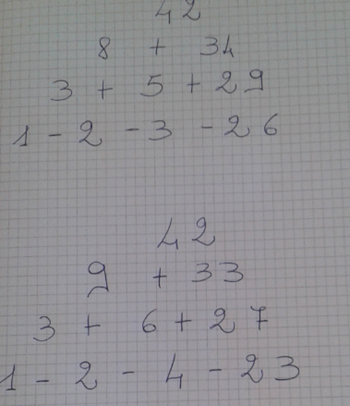 42
8 + 34
3 + 5 + 29
1 - 2 - 3 - 26
42
9 + 33
3 + 6 + 27
1 - 2 - 4 - 23